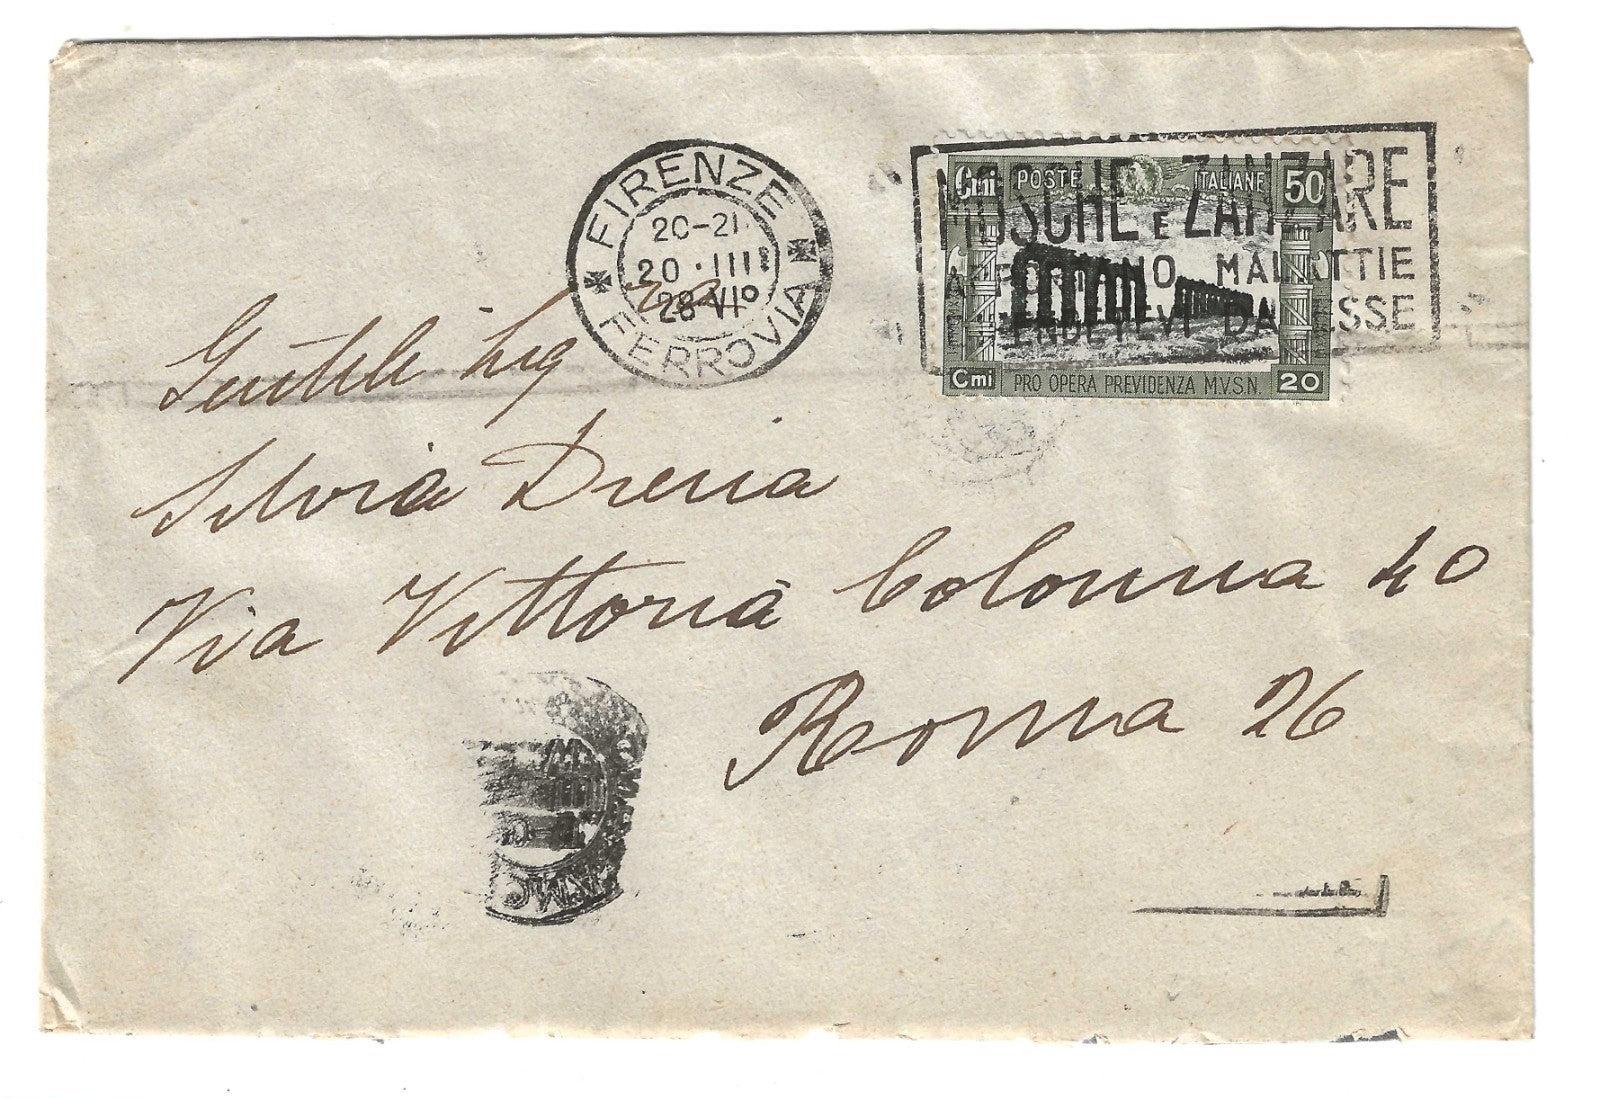 FIRENZE
20-21
20·IIII
28-VI°
FERROVIA
MOSCHE E ZANZARE
APPORTANO MALATTIE
DIFENDETEVI DA ESSE
Cmi POSTE ITALIANE 50
Cmi PRO OPERA PREVIDENZA M.V.S.N. 20
Gentile Sig
Silvia Dreria
Via Vittoria Colonna 40
Roma 26